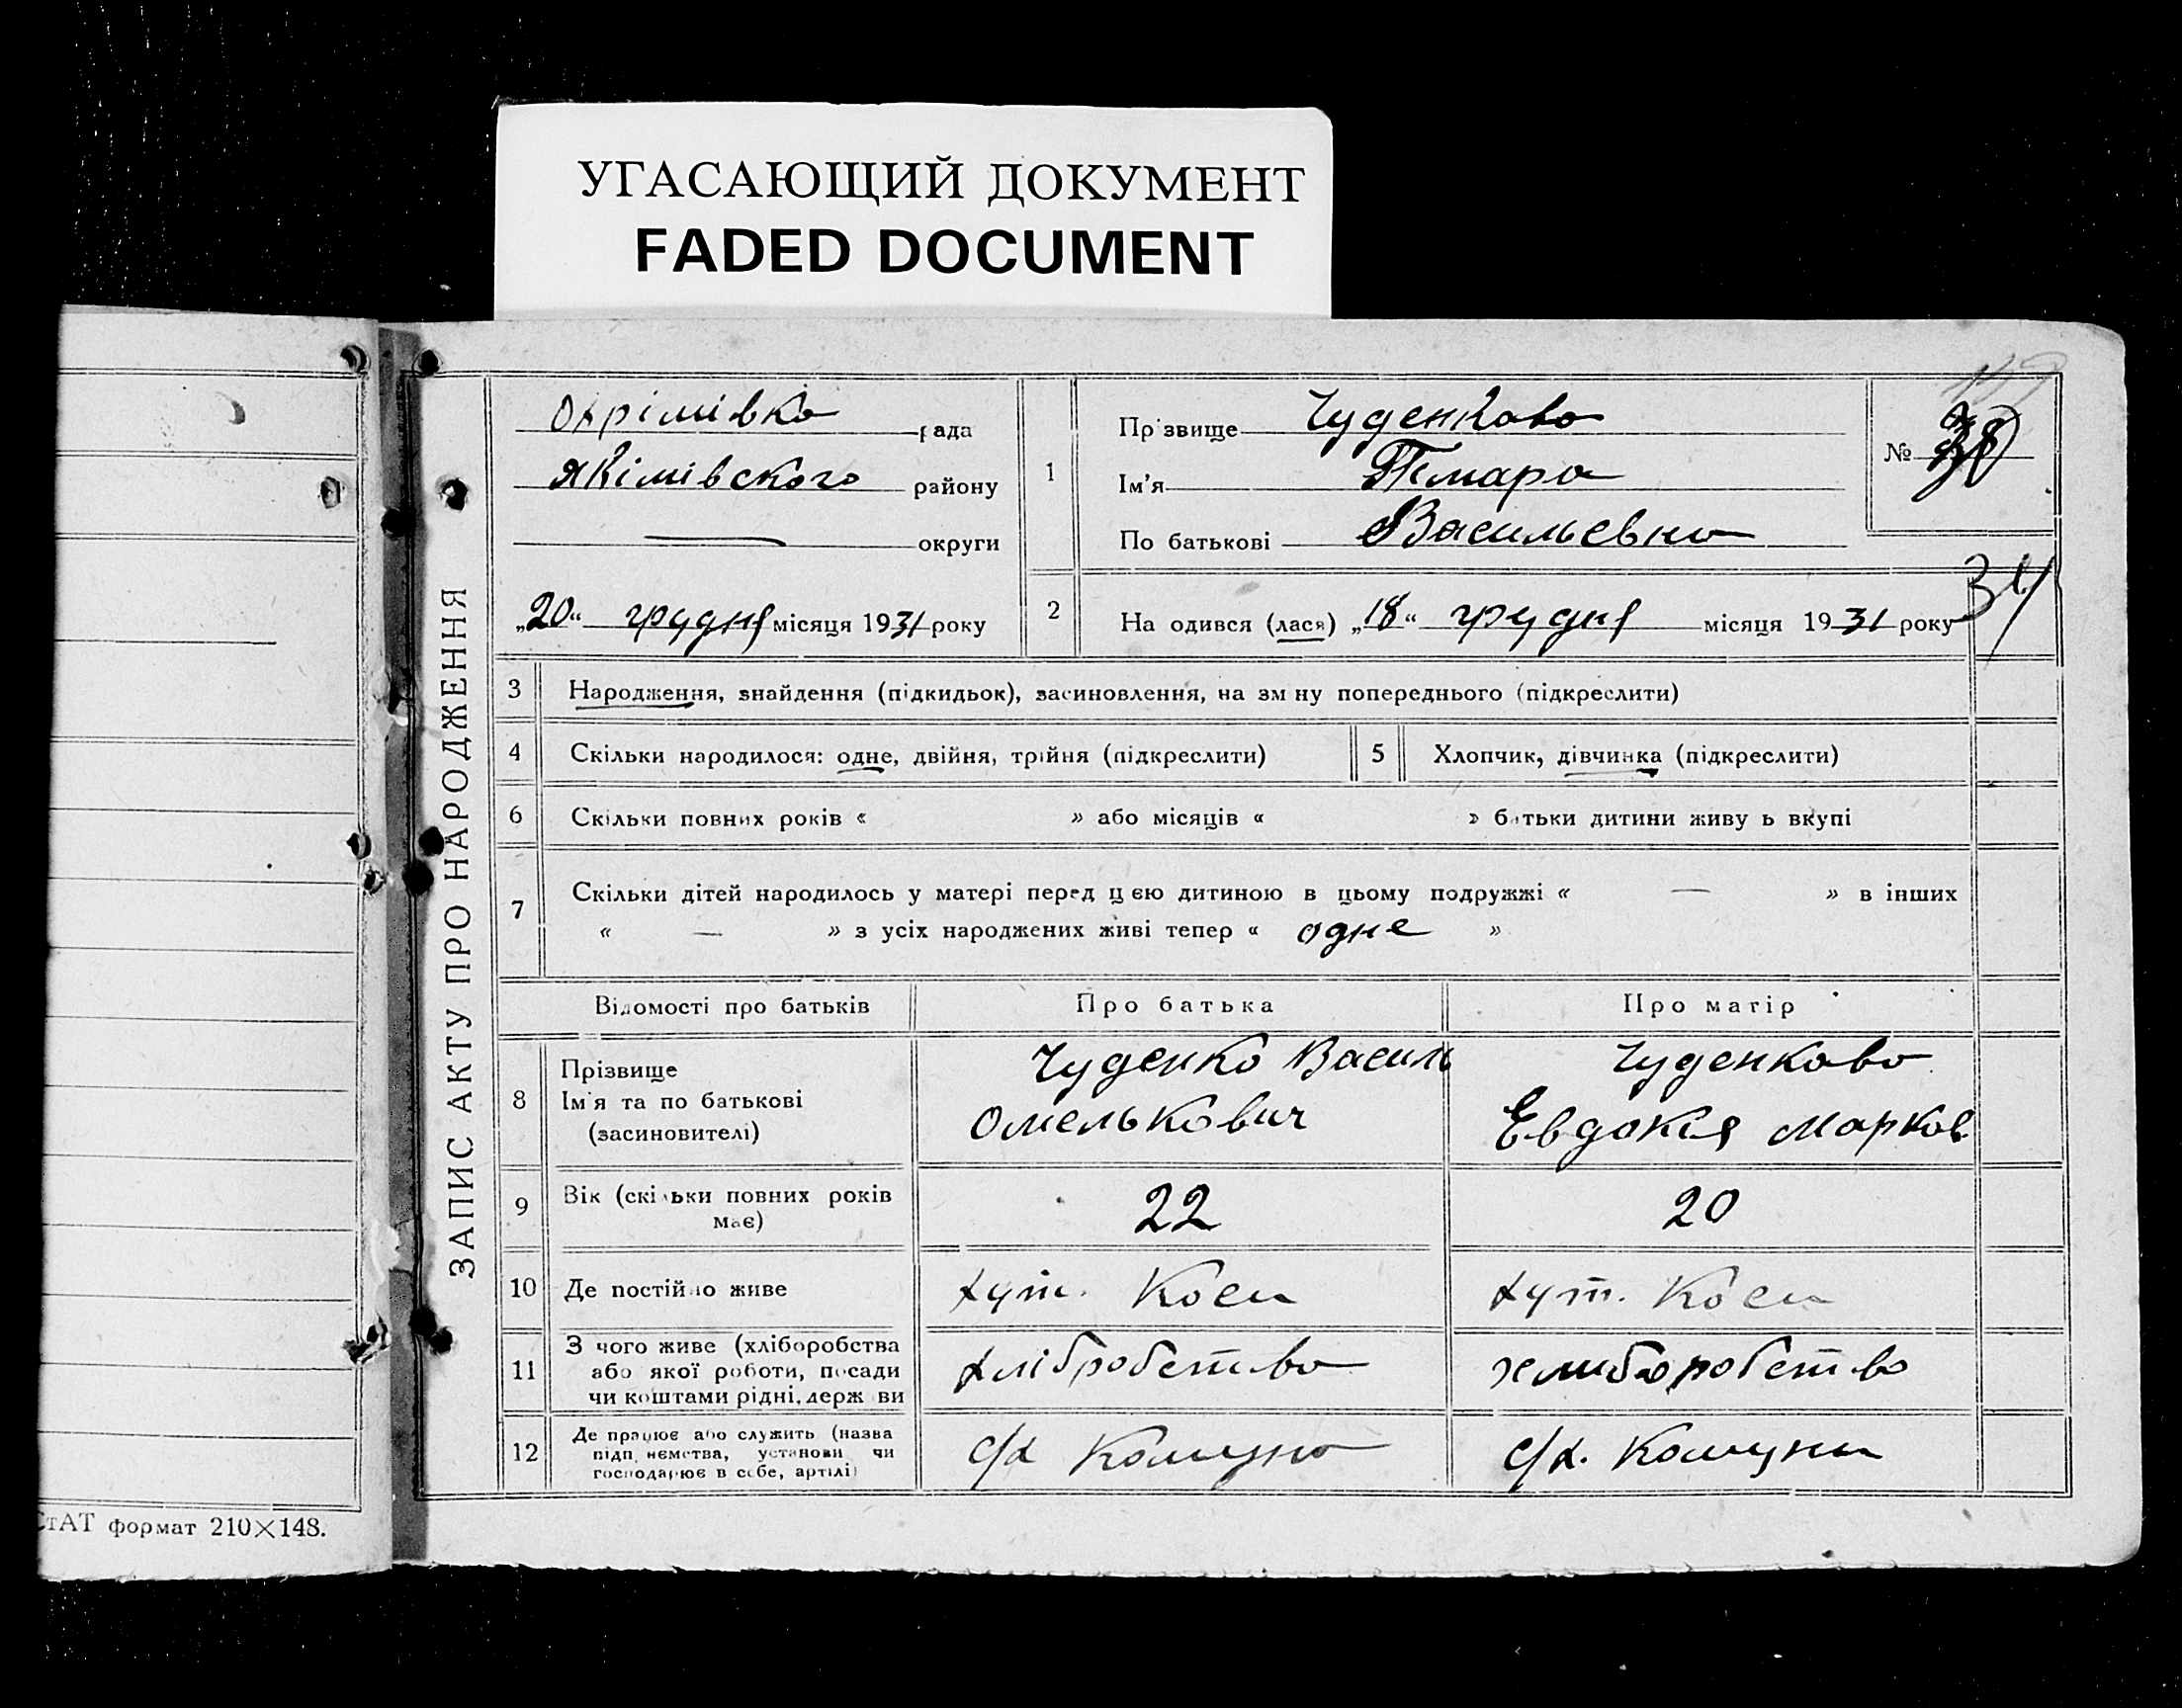 УГАСАЮЩИЙ ДОКУМЕНТ
FADED DOCUMENT
ЗАПИС АКТУ ПРО НАРОДЖЕННЯ
Охрімівка рада
Якімівского району
— округи
„20“ грудня місяця 1931 року
1
Прізвище Чуденкова
Ім'я Тамара
По батькові Васильевна
№
34
2
На одився (лася) „18“ грудня місяця 1931 року
3 Народження, знайдення (підкидьок), засиновлення, на зм ну попереднього (підкреслити)
4 Скільки народилося: одне, двійня, трійня (підкреслити)
5 Хлопчик, дівчинка (підкреслити)
6 Скільки повних років « » або місяців « » батьки дитини живу ь вкупі
7 Скільки дітей народилось у матері перед цею дитиною в цьому подружжі « — » в інших
« — » з усіх народжених живі тепер « одне »
Відомості про батьків Про батька Про матір
8 Прізвище
Ім'я та по батькові
(засиновителі)
Чуденко Василь
Омелькович
Чуденкова
Евдокия Марков
9 Вік (скільки повних років
має)
22
20
10 Де постійно живе
хут. Коси
хут. Коси
11 З чого живе (хліборобства
або якої роботи, посади
чи коштами рідні, держ ви
хлібробство
хлиборобство
12 Де працює або служить (назва
підп иємства, установи чи
господарює в себе, артілі)
с/х Комуна
с/х. Комуни
СтАТ формат 210×148.